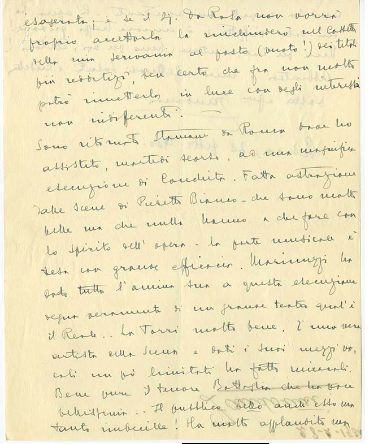 esagerata; e se il Sig. Da Rosa non vorrà
proprio accettarla la rinchiuderò nel cassetto
della mia scrivania al posto (vuoto!) dei titoli
più redditizi, ben certo che fra non molto
potrò rimetterla in luce con degli interessi
non indifferenti.
Sono ritornato stamane da Roma dove ho
assistito, martedì scorso, ad una magnifica
esecuzione di Conchita. Fatta astrazione
dalle scene di Pieretto Bianco che sono molto
belle ma che nulla hanno a che fare con
lo spirito dell'opera - la parte musicale è
resa con grande efficacia. Marinuzzi ha
dato tutta l'anima sua a questa esecuzione
degna veramente di un grande teatro qual'è
il Reale.. La Torri molto bene. È una vera
artista della scena e dati i suoi mezzi vo-
cali un pò limitati ha fatto miracoli.
Bene pure il tenore Battaglia che ha voce
bellissima.. Il pubblico anch'esso un
tanto imbecille! Ha molto applaudito ma